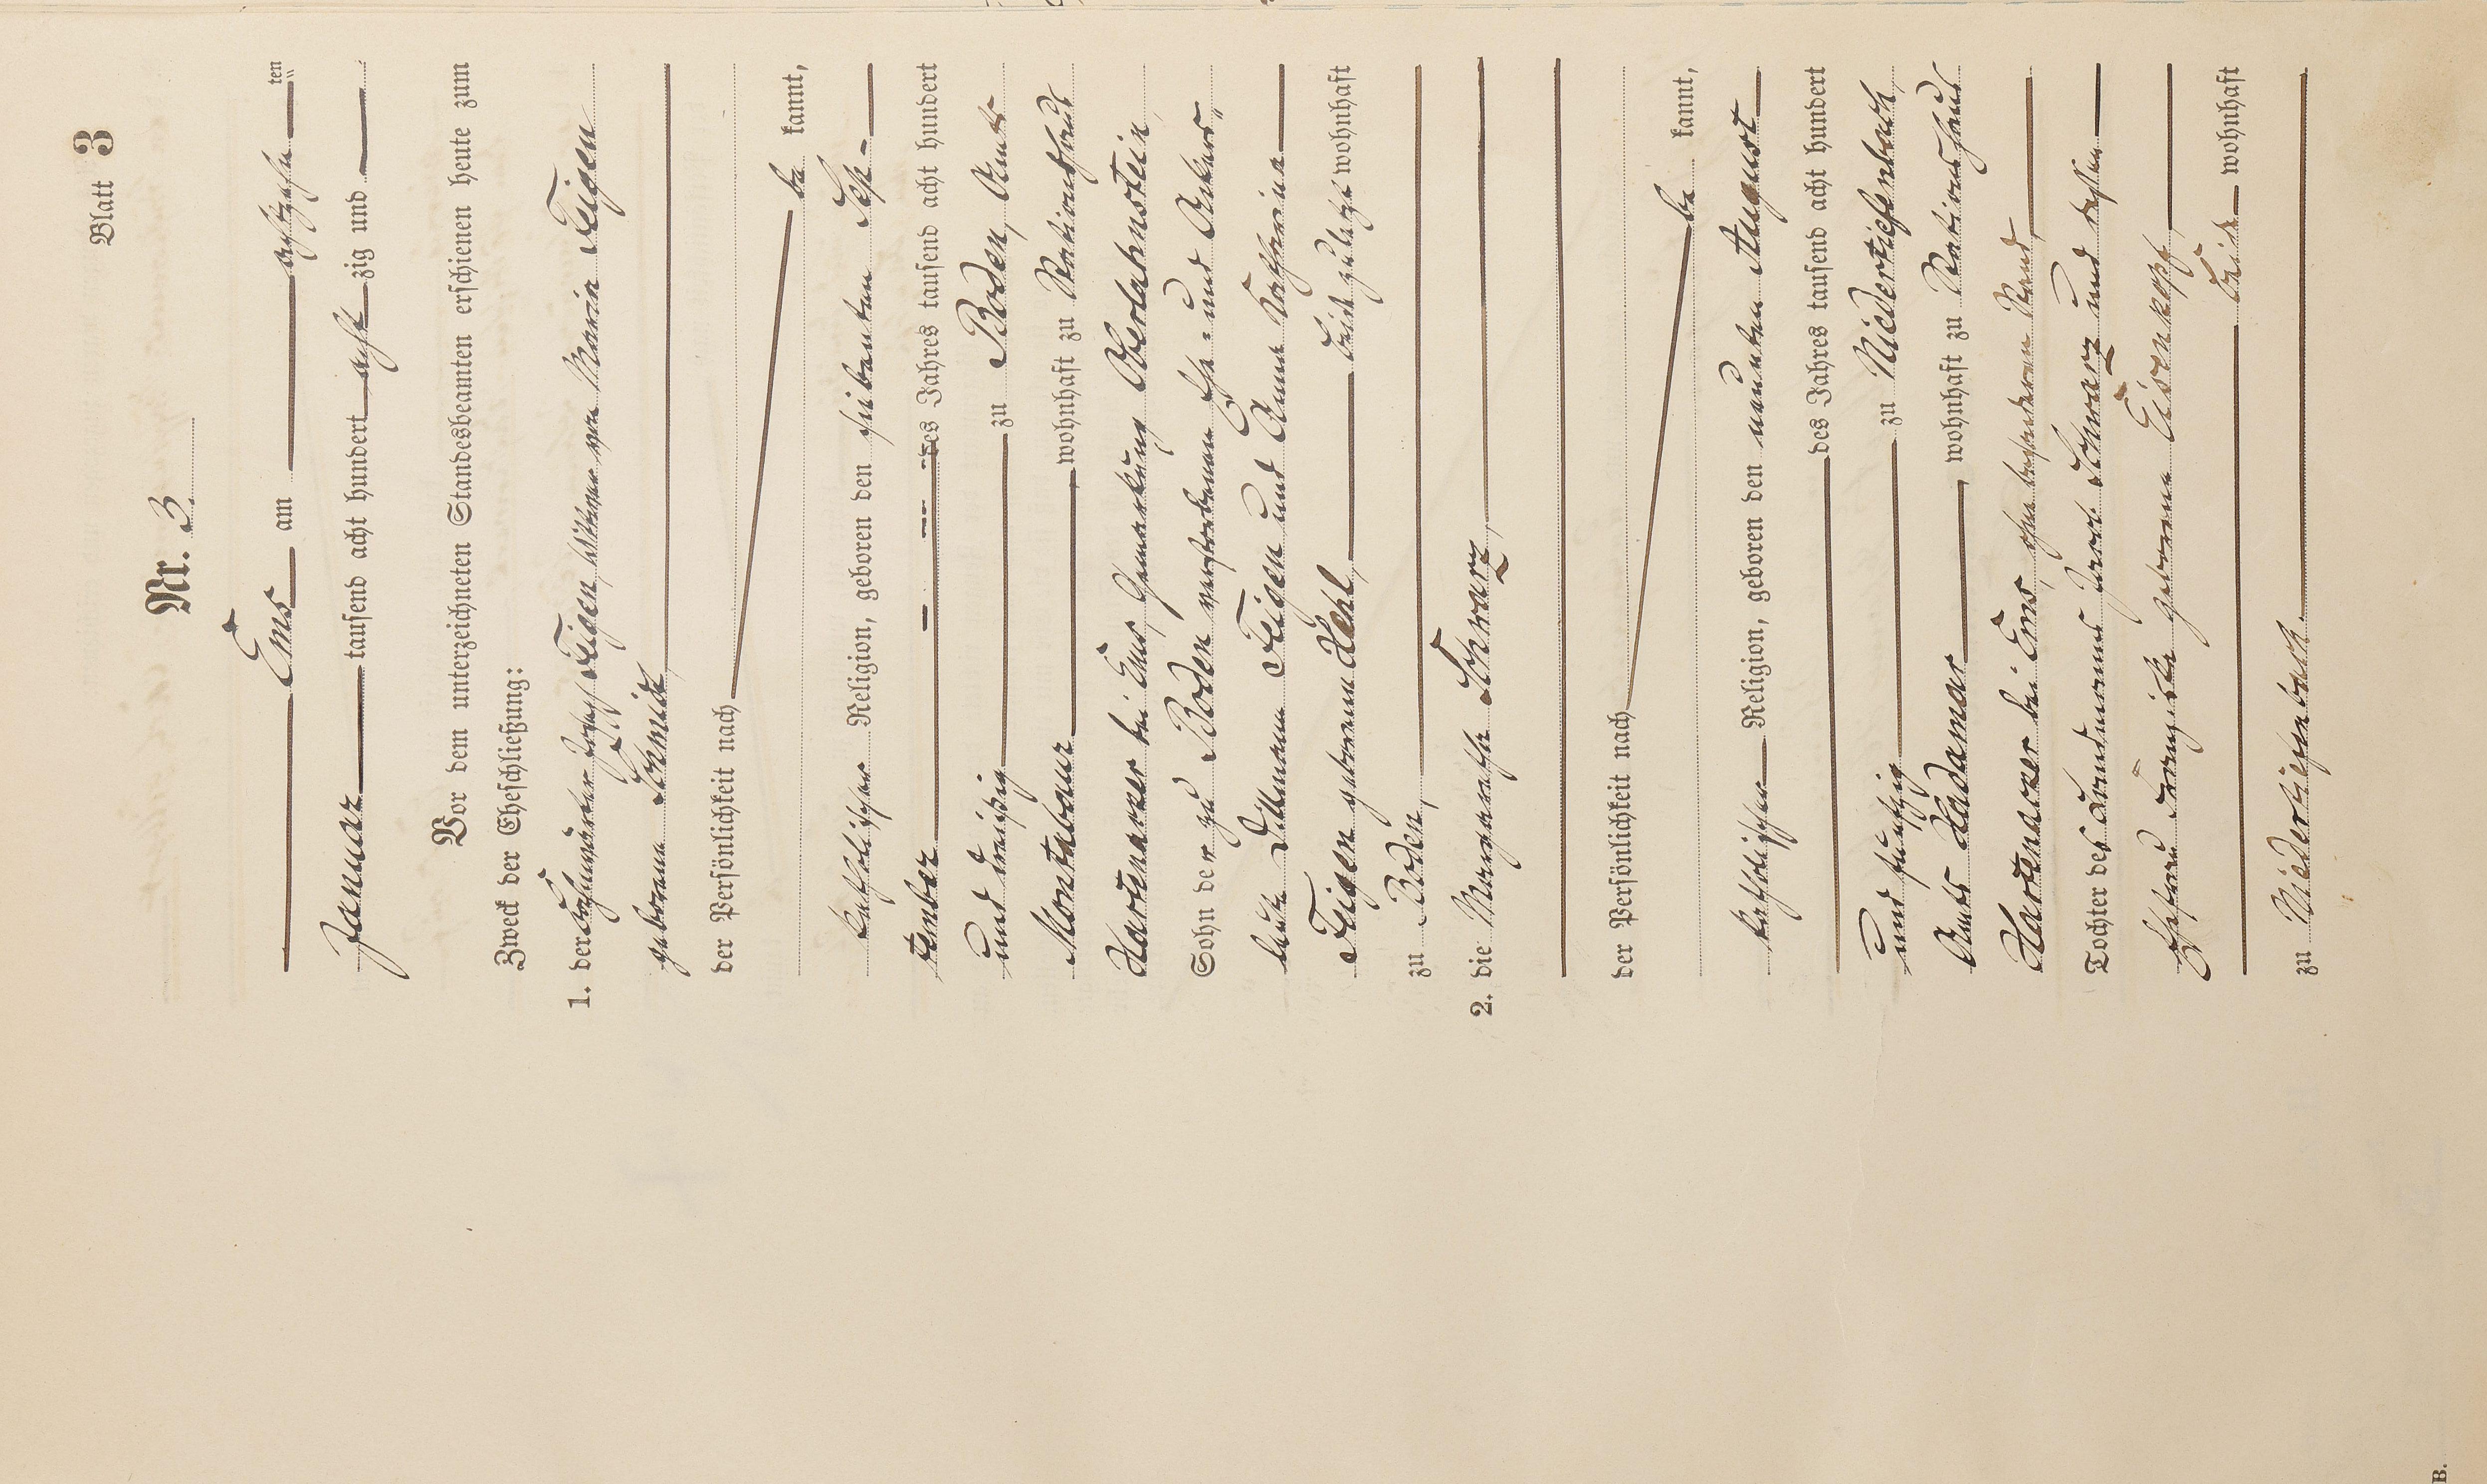 Blatt 3
Nr. 3.
Ems am achtzehn ten
Januar tausend acht hundert acht zig und
Vor dem unterzeichneten Standesbeamten erschienen heute zum
Zweck der Eheschließung:
1. der Bahnwärter Joseph Feigen, Wittwer von Maria Feigen
geborene Schmidt,
der Persönlichkeit nach
be kannt,
katholischer Religion, geboren den siebenten Sep-
tember des Jahres tausend acht hundert
und dreißig zu Boden, Amts
Montabaur, wohnhaft zu Stationshaus
Hartenacker bei Ems, Gemarkung Oberlahnstein,
Sohn der zu Boden verstorbenen Ehe- und Ackers-
leute Feigen und Anna Katharina
Feigen geborenen Hehl, beide zuletzt wohnhaft
zu Boden,
2. die Margaretha Schwarz,
der Persönlichkeit nach
be kannt,
katholischer Religion, geboren den neunten August
des Jahres tausend acht hundert
und fünfzig zu Niedertiefenbach,
Amts Hadamar, wohnhaft zu Stationshaus
Hartenacker bei Ems, ohne besonderen Stand,
Tochter des Landmanns Jacob Schwarz und dessen
Ehefrau geborene Eisenkopf,
beide wohnhaft
zu Niedertiefenbach.
B.